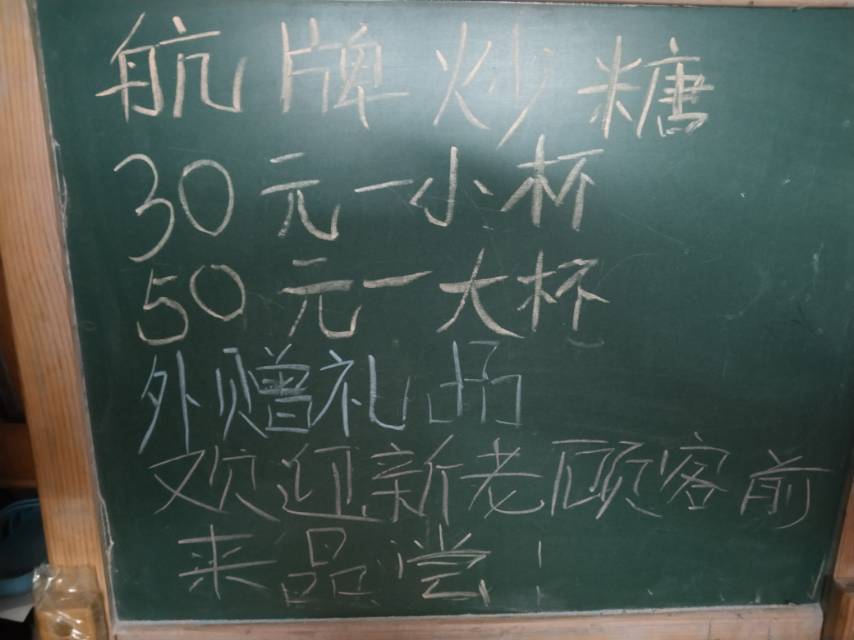 航牌炒糖
30元一小杯
50元一大杯
外赠礼品
欢迎新老顾客前
来品尝!